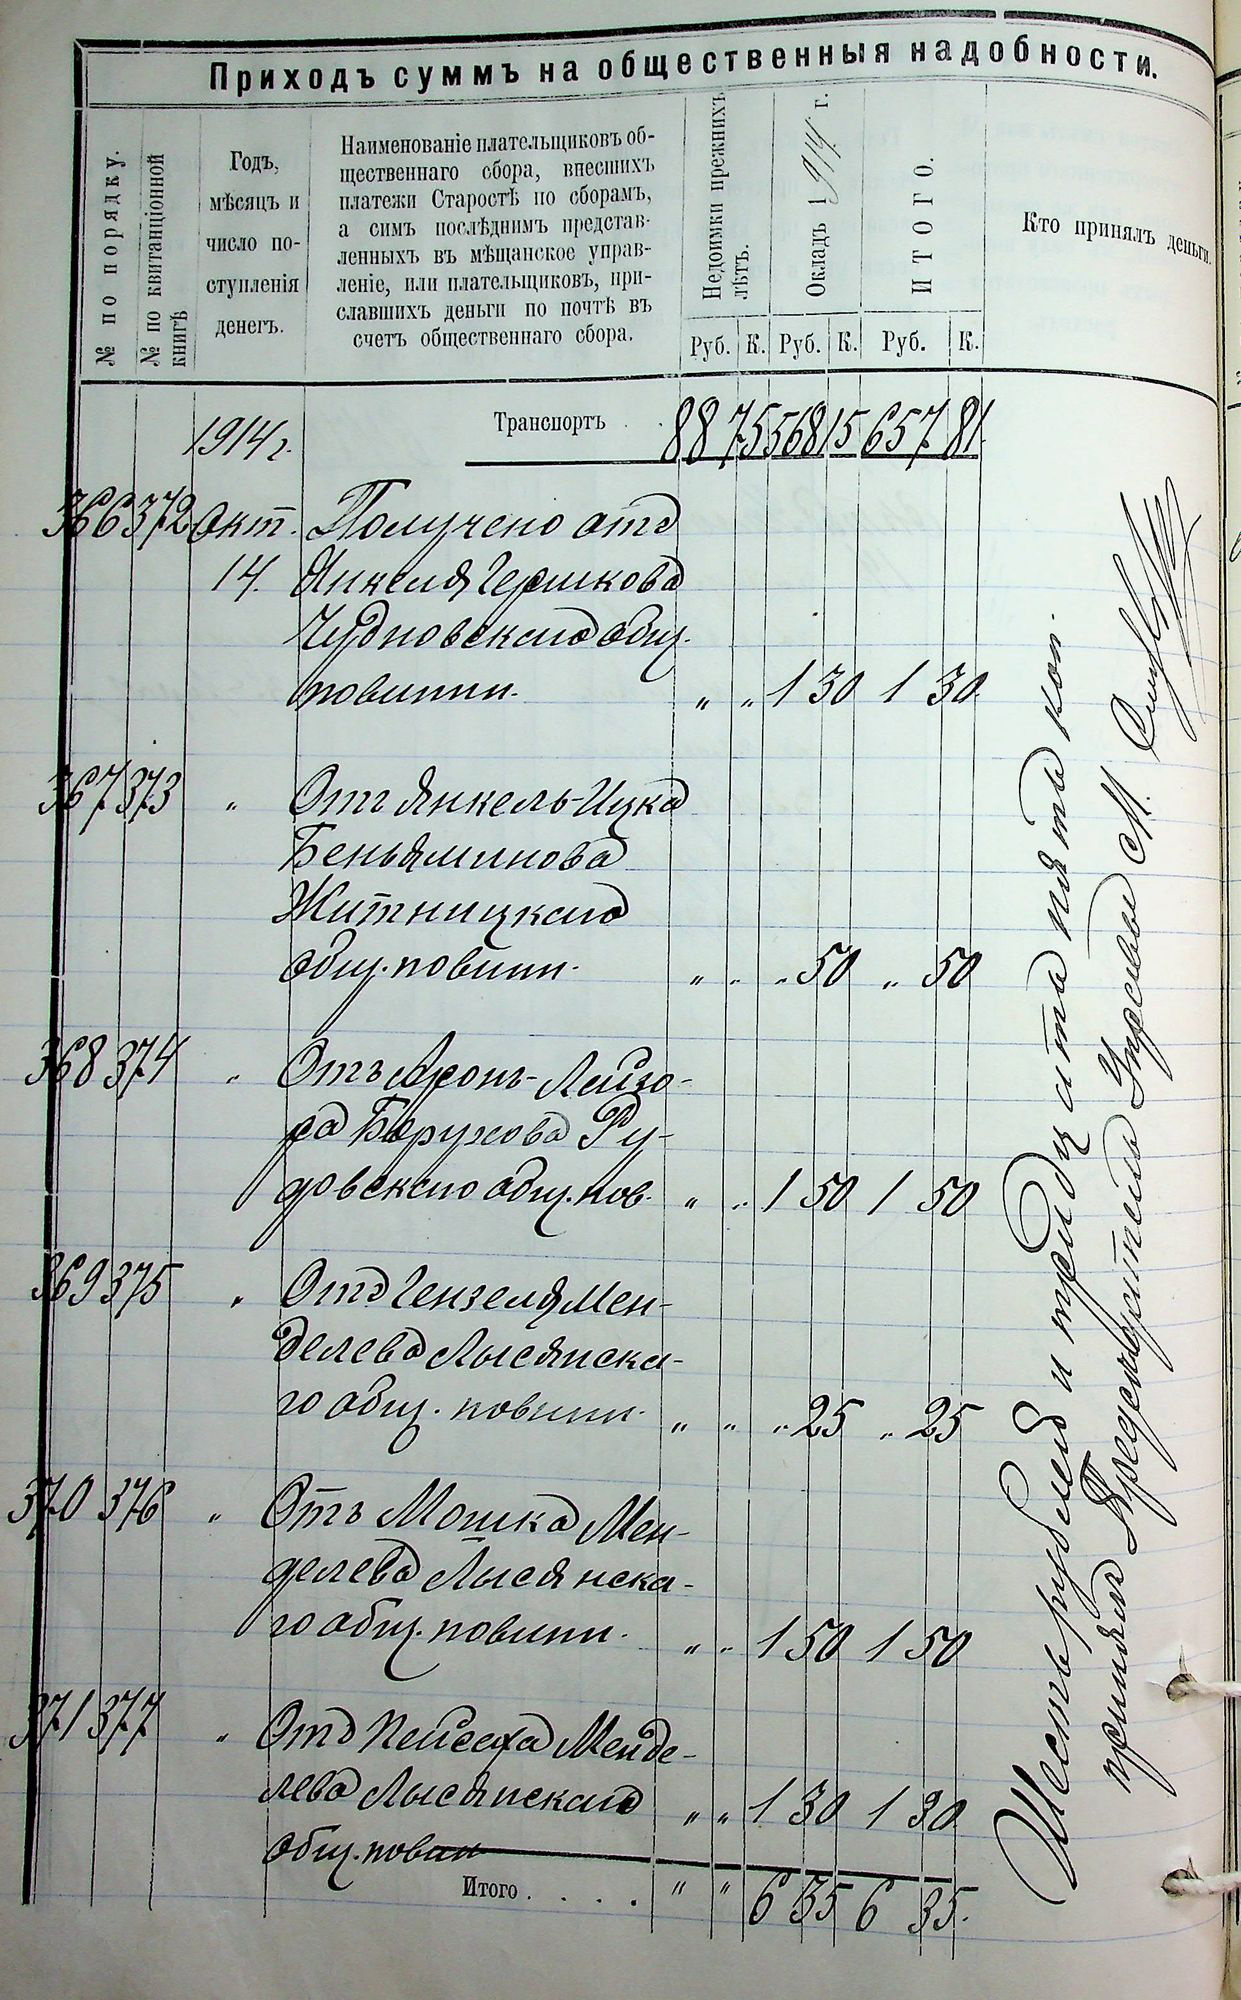 Приходъ суммъ на общественныя надобности.
№ по порядку.
№ по квитанціонной
книгѣ
Годъ,
мѣсяцъ и
число по-
ступленія
денегъ.
Наименованіе плательщиковъ об-
щественнаго сбора, внесшихъ
платежи Старостѣ по сборамъ,
а симъ послѣднимъ представ-
ленныхъ въ мѣщанское управ-
леніе, или плательщиковъ, при-
славшихъ деньги по почтѣ въ
счетъ общественнаго сбора.
Недоимки прежнихъ
лѣтъ.
Окладъ 1914 г.
ИТОГО.
Кто принялъ деньги.
Руб. К. Руб. К. Руб. К.
1914 г. Транспортъ . . 88 75 568 15 657 81
366 372 Окт. Получено отъ
14. Янкеля Гершкова
Чудновскаго общ.
повинн. „ „ 1 30 1 30
367 373 „ Отъ Янкель-Ицка
Беньяминова
Житницкаго
общ. повинн. „ „ „ 50 „ 50
368 374 „ Отъ Аронъ-Лейзо-
ра Борухова Ру-
довскаго общ. пов. „ „ 1 50 1 50
369 375 „ Отъ Гензеля Мен-
делева Лысянска-
го общ. повинн. „ „ „ 25 „ 25
370 376 „ Отъ Мошка Мен-
делева Лысянска-
го общ. повинн. „ „ 1 50 1 50
371 377 „ Отъ Пейсаха Менде-
лева Лысянскаго „ „ 1 30 1 30
общ. повин
Итого . . . . „ „ 6 35 6 35.
Шесть рублей и тридцать пять коп.
принялъ Предсѣдатель Управы М.